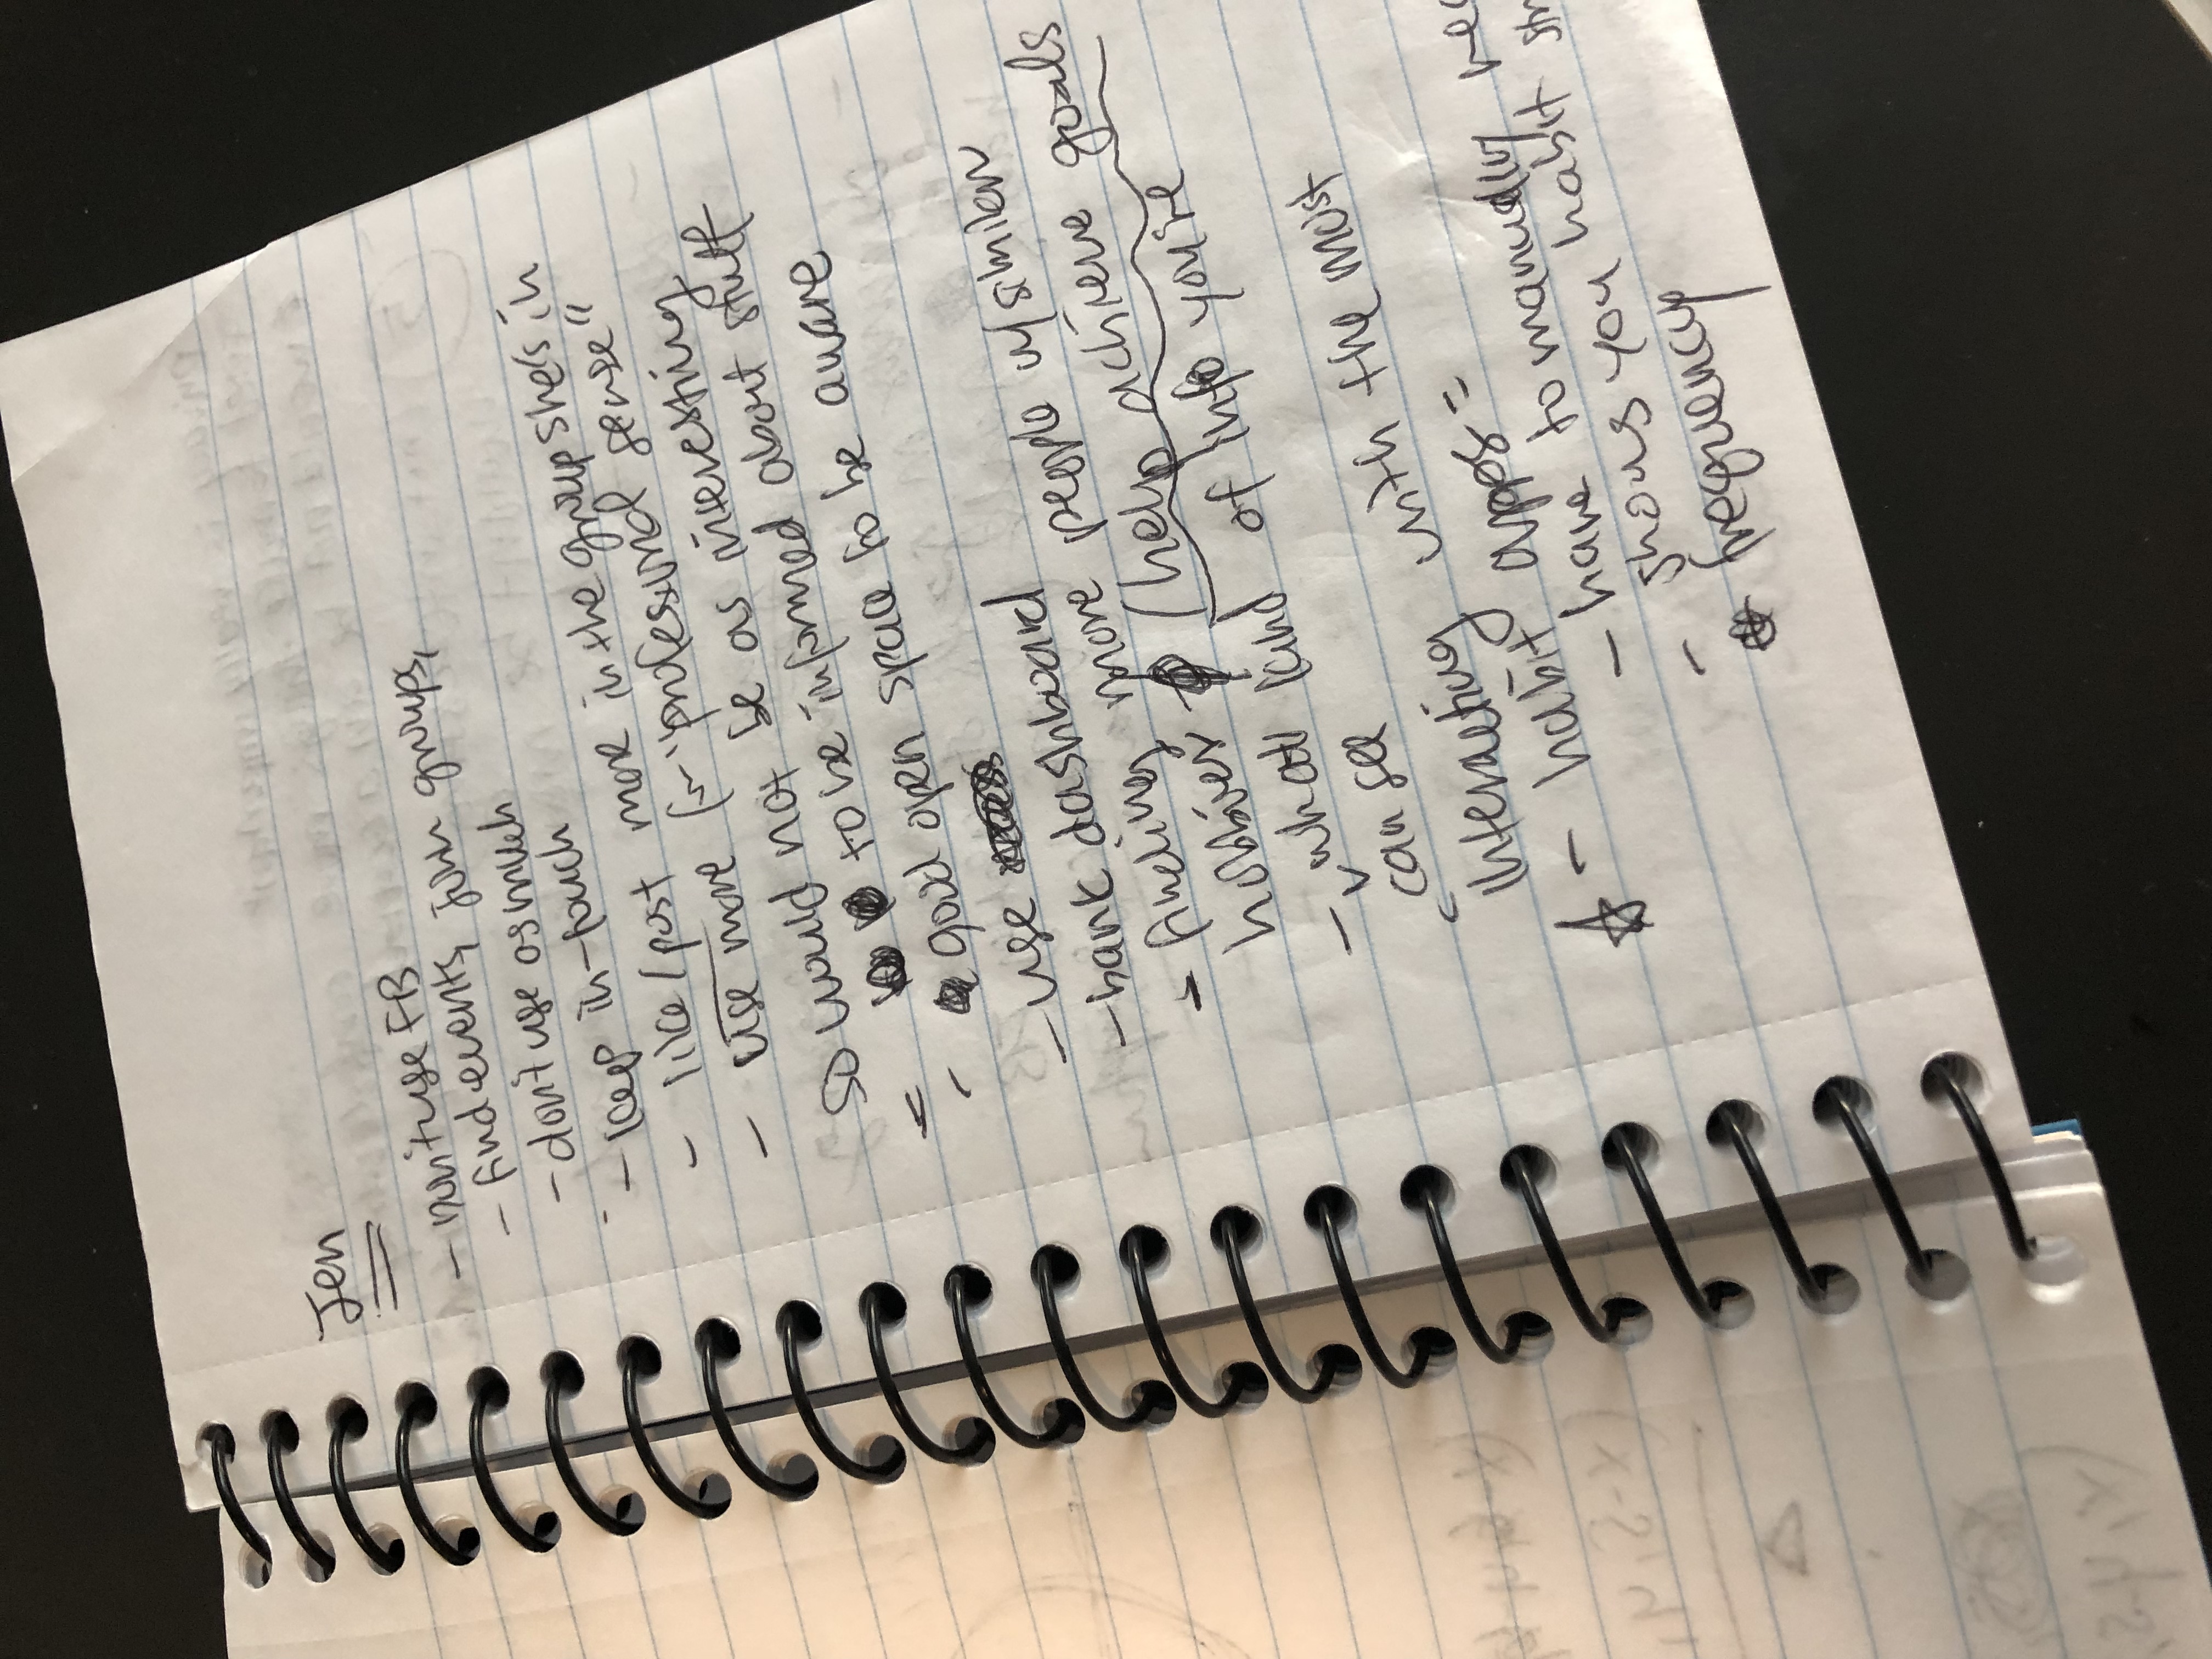 Jen
- won't use FB
- find events, join groups,
- don't use as much
- keep in-touch
- like/post more in the group she's in
- use more for "professional sense"
so would not be as interesting
- to be informed about stuff
- good open space to be aware
- use
- bank dashboard
- finding more people w/ similar
hobbies (help achieve goals
- what kind of info you're
can see
interacting with the most
☆ - habit apps =
- have to manually rec
- shows you habit str
frequency
(x-2